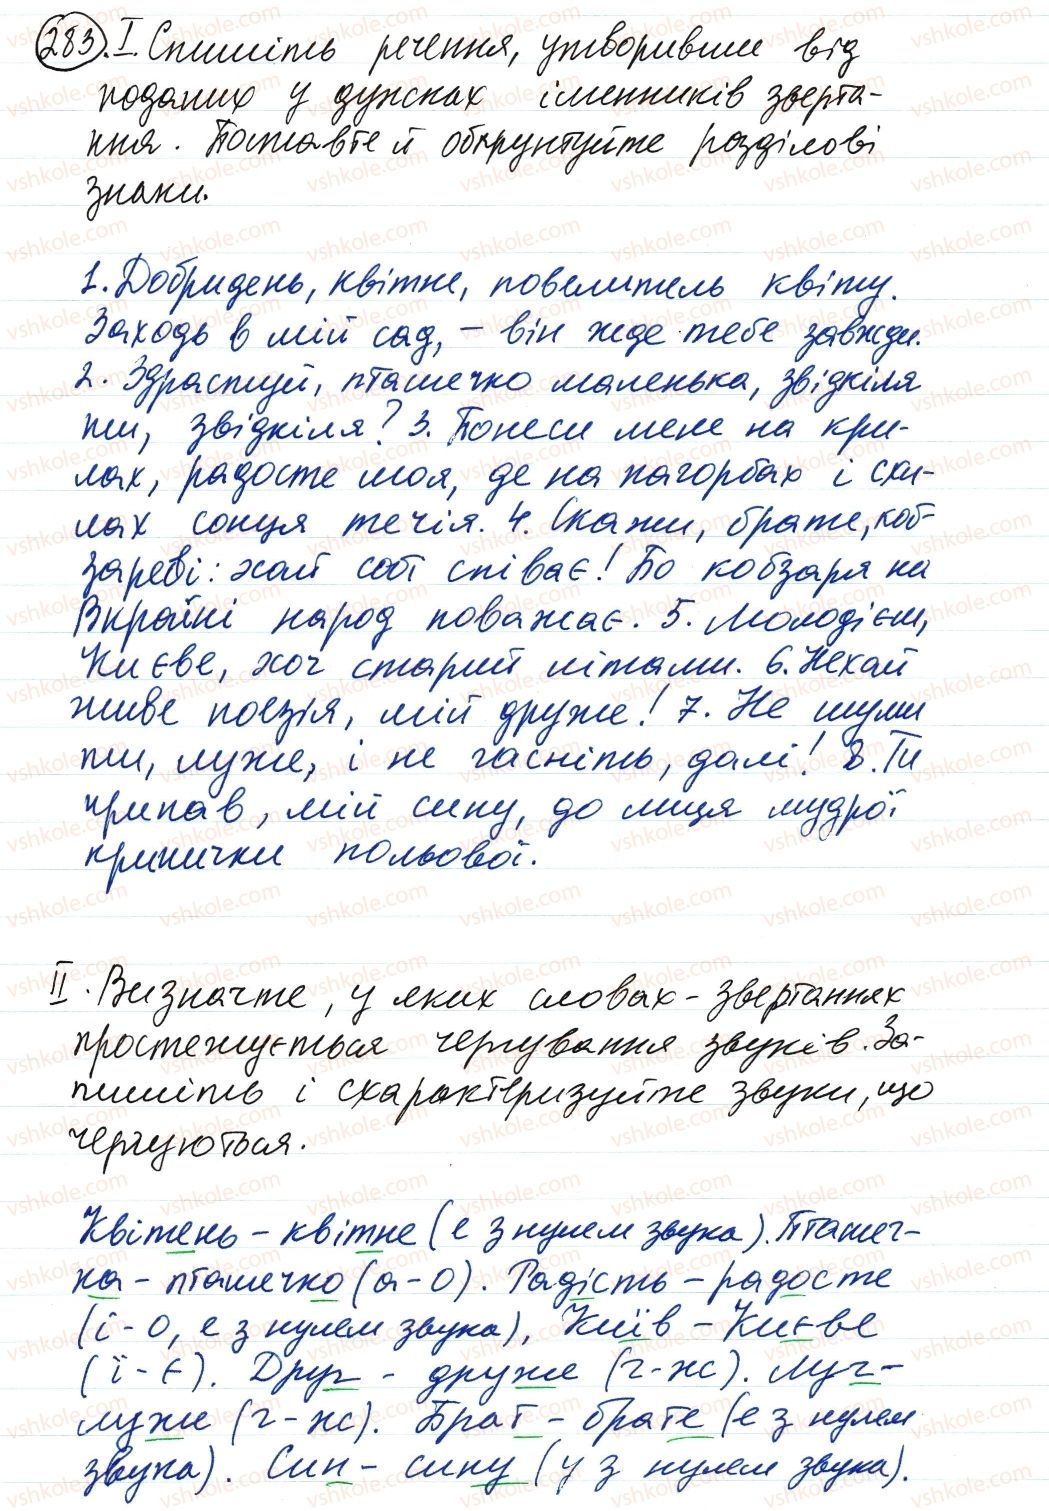 283. I. Спишіть речення, утворивши від
поданих у дужках іменників зверта-
ння. Поставте й обґрунтуйте розділові
знаки.
1. Добридень, квітне, повелитель квіту.
Заходь в мій сад, – він жде тебе завжди.
2. Здрастуй, пташечко маленька, звідкіля
ти, звідкіля? 3. Понеси мене на кри-
лах, радосте моя, де на пагорбах і схи-
лах сонця течія. 4. Скажи, брате, коб-
зареві: хай собі співає! Бо кобзаря на
Вкраїні народ поважає. 5. Молодієш,
Києве, хоч старий літами. 6. Нехай
живе поезія, мій друже! 7. Не шуми
ти, луже, і не гасніть, далі! 8. Ти
припав, мій сину, до лиця мудрої
кринички польової.
II. Визначте, у яких словах-звертаннях
простежується чергування звуків. За-
пишіть і схарактеризуйте звуки, що
чергуються.
Квітень – квітне (е з нулем звука). Пташеч-
ка – пташечко (а-о). Радість – радосте
(і-о, е з нулем звука), Київ – Києве
(ї-є). Друг – друже (г-ж). Луг –
луже (г-ж). Брат – брате (е з нулем
звука). Син – сину (у з нулем звука).